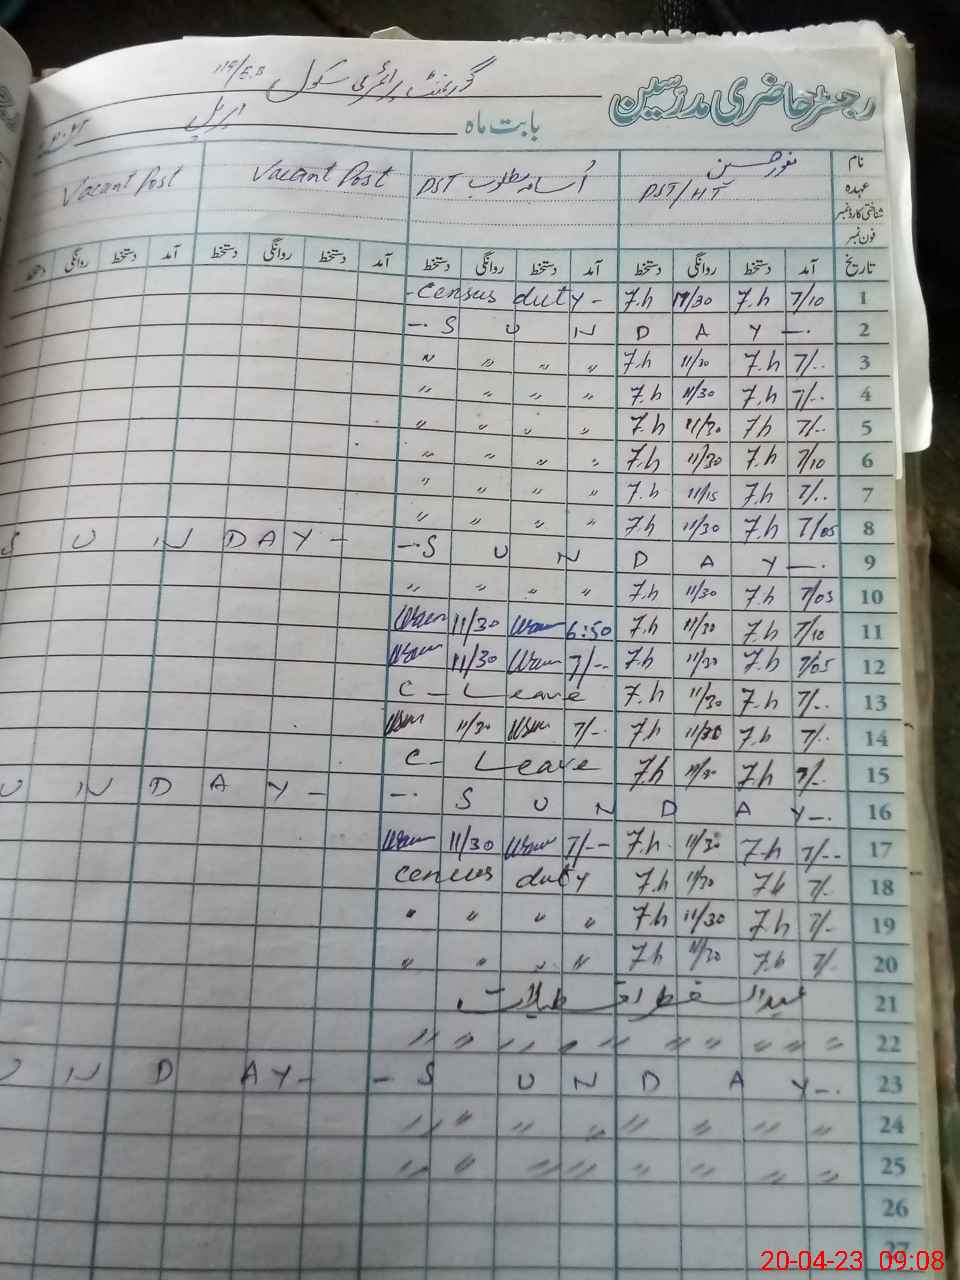 رجسٹر حاضری مدرسین گورنمنٹ پرائمری سکول 119/E.B
بابت ماہ اپریل
نام نور حسین اُسامہ مطلوب PST Vacant Post Vacant Post
عہدہ PST/HT
شناختی کارڈ نمبر
فون نمبر
تاریخ آمد دستخط روانگی دستخط آمد دستخط روانگی دستخط آمد دستخط روانگی دستخط آمد دستخط روانگی دستخط
1 7/10 7.h 11/30 7.h - Census duty -
2 -. S U N D A Y -.
3 7/.. 7.h 11/30 7.h " " " "
4 7/.. 7.h 11/30 7.h " " " "
5 7/.. 7h 11/30 7.h " " " "
6 7/10 7.h 11/30 7.h " " " "
7 7/.. 7.h 11/15 7.h " " " "
8 7/05 7.h 11/30 7.h " " " "
9 -. S U N D A Y -. S U N D A Y -
10 7/05 7.h 11/30 7.h " " " "
11 7/10 7.h 11/30 7.h 6:50 11/30
12 7/05 7.h 11/30 7.h 7/-- 11/30
13 7/.. 7.h 11/30 7.h C - Leave
14 7/.. 7.h 11/30 7.h 7/-. 11/30
15 7/.. 7.h 11/30 7h C - Leave
16 -. S U N D A Y -. U N D A Y -
17 7/-- 7.h 11/30 7.h. 7/-- 11/30
18 7/. 7h 11/30 7.h Census duty
19 7/. 7.h 11/30 7.h " " " "
20 7/. 7.h 11/30 7.h " " " "
21 عید الفطر تعطیلات
22 " " " " " " " "
23 - S U N D A Y -. U N D A Y -
24 " " " " " " " "
25 " " " " " " " "
26
27
20-04-23 09:08